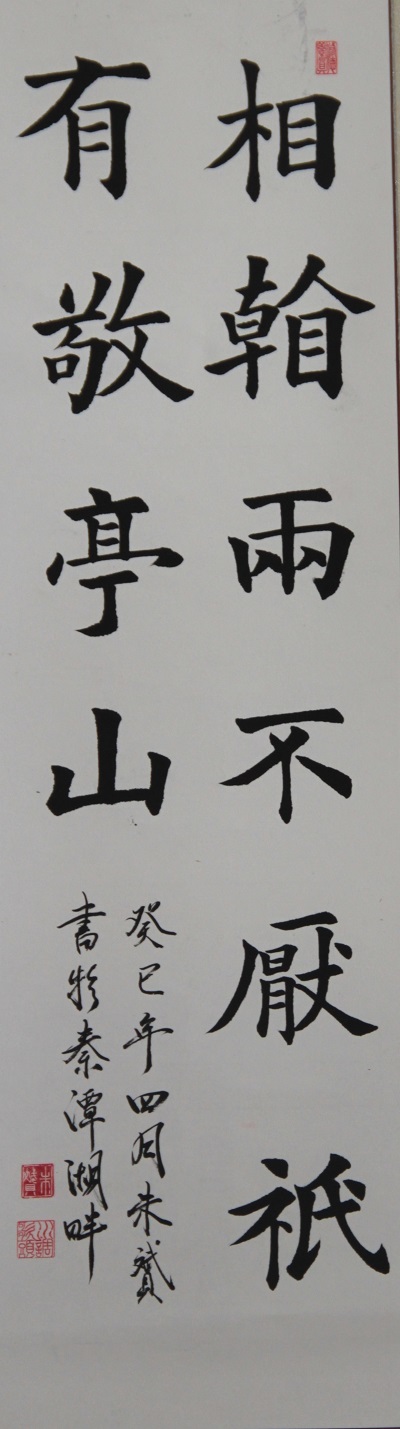 相看兩不厭祇
有敬亭山
癸巳年四月朱贇
書於秦潭湖畔